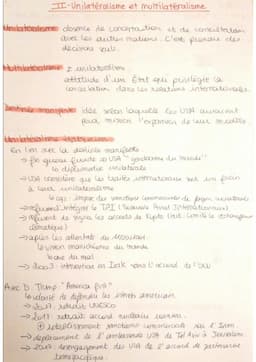 II- Unilatéralisme et multilatéralisme
Unilatéralisme absence de concertation et de consultation
avec les autres nations. C'est prendre des
décisions seul.
Multilatéralisme ≠ unilatéralisme
attitude d'un État qui privilégie la
concertation dans les relations internationales.
Destinée manifeste idée selon laquelle les USA auraient
pour mission l'expansion de leur modèle
Unilatéralisme
En lien avec la destinée manifeste
USA "gendarme du monde"
diplomatie unilatérale
→ USA considère que les traités internationaux sont un frein
à leur unilatéralisme
ex: impose des sanctions commerciales de façon unilatérale
→ refusent d'intégrer la CPI (Tribunal Pénal International)
→ refusent de signer les accords de Kyoto (limite le réchauffement
climatique)
→ après les attentats du
vision manichéenne du monde
axe du mal
→ 2003 intervention en Irak sans l'accord de l'ONU
Avec D. Trump "America first"
volonté de défendre les intérêts américains
→ 2017 retrait UNESCO
→ 2018 retrait accord nucléaire iranien
⊕ rétablissement sanctions commerciales vis à l'Iran
→ déplacement de l'ambassade USA de Tel Aviv à Jérusalem
→ désengagement des USA de l'accord de partenariat
transpacifique.